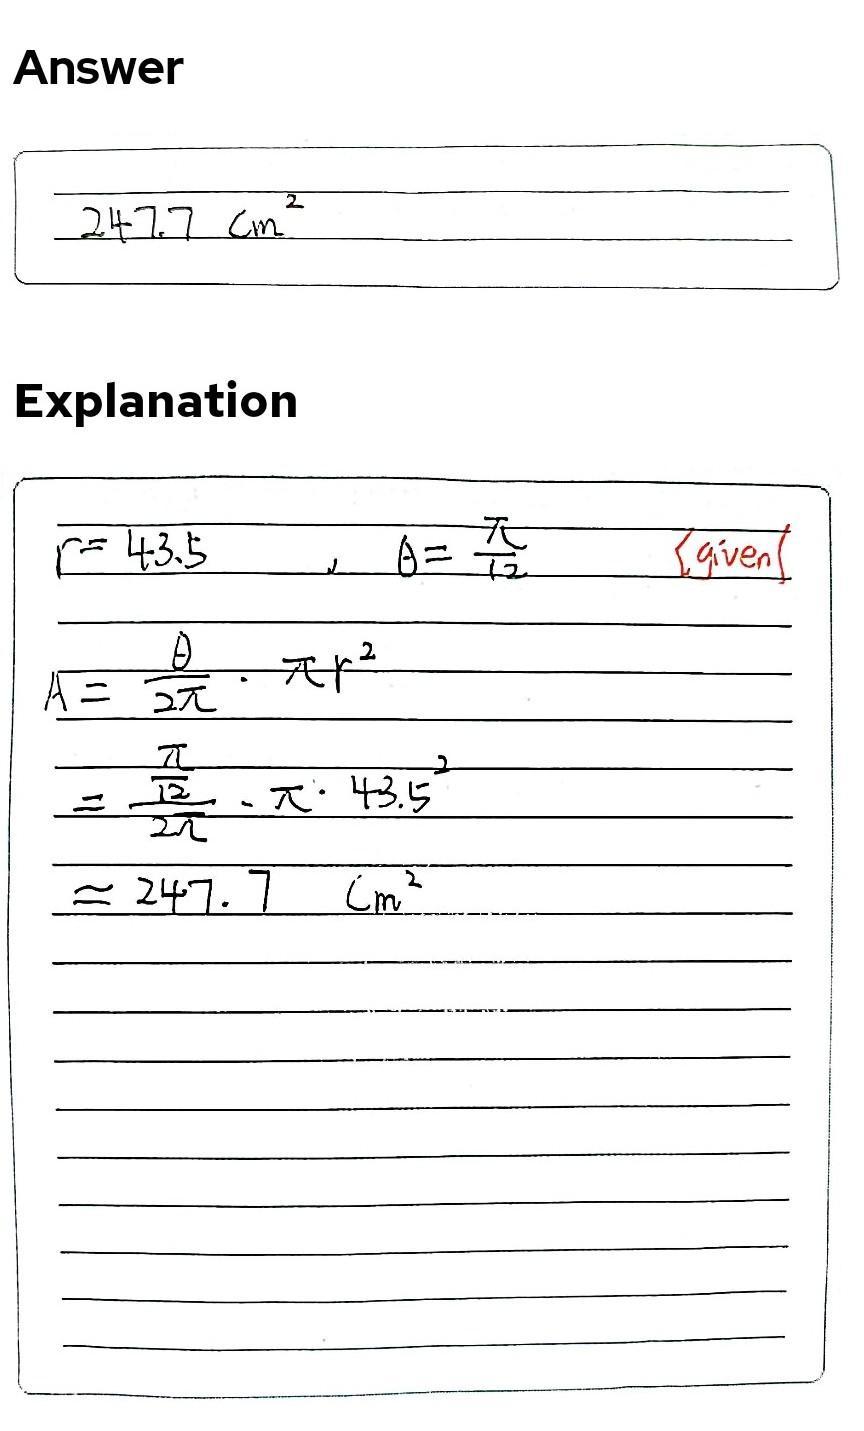 Answer
247.7 cm²
Explanation
r = 43.5 , θ = π/12 {given{
A = θ/2π · πr²
= π/12/2π · π · 43.5²
≈ 247.7 cm²